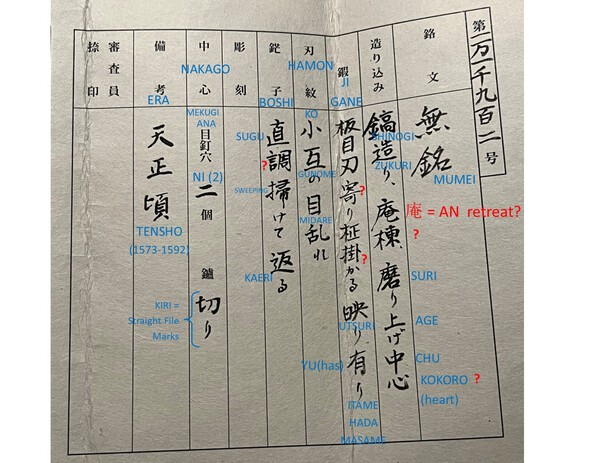 第一万一千九百二号
銘文 無銘
MUMEI
庵 = AN retreat?
造り込み 鎬造り、庵棟 磨り上げ中心
SHINOGI
ZUKURI
?
SURI
AGE
CHU
KOKORO ?
(heart)
鍛 板目刃寄り柾掛かる 映り有り
JI
GANE
?
?
UTSURI
YU(has)
ITAME
HADA
MASAME
刃紋 小互の目乱れ
HAMON
KO
GUNOME
MIDARE
鋩子 直調掃けて返る
BOSHI
SUGU
?
SWEEPING
KAERI
彫刻
中心 目釘穴 二個 鑢 切り
NAKAGO
MEKUGI
ANA
NI (2)
KIRI =
Straight File
Marks
備考 天正頃
ERA
TENSHO
(1573-1592)
審査員
捺印